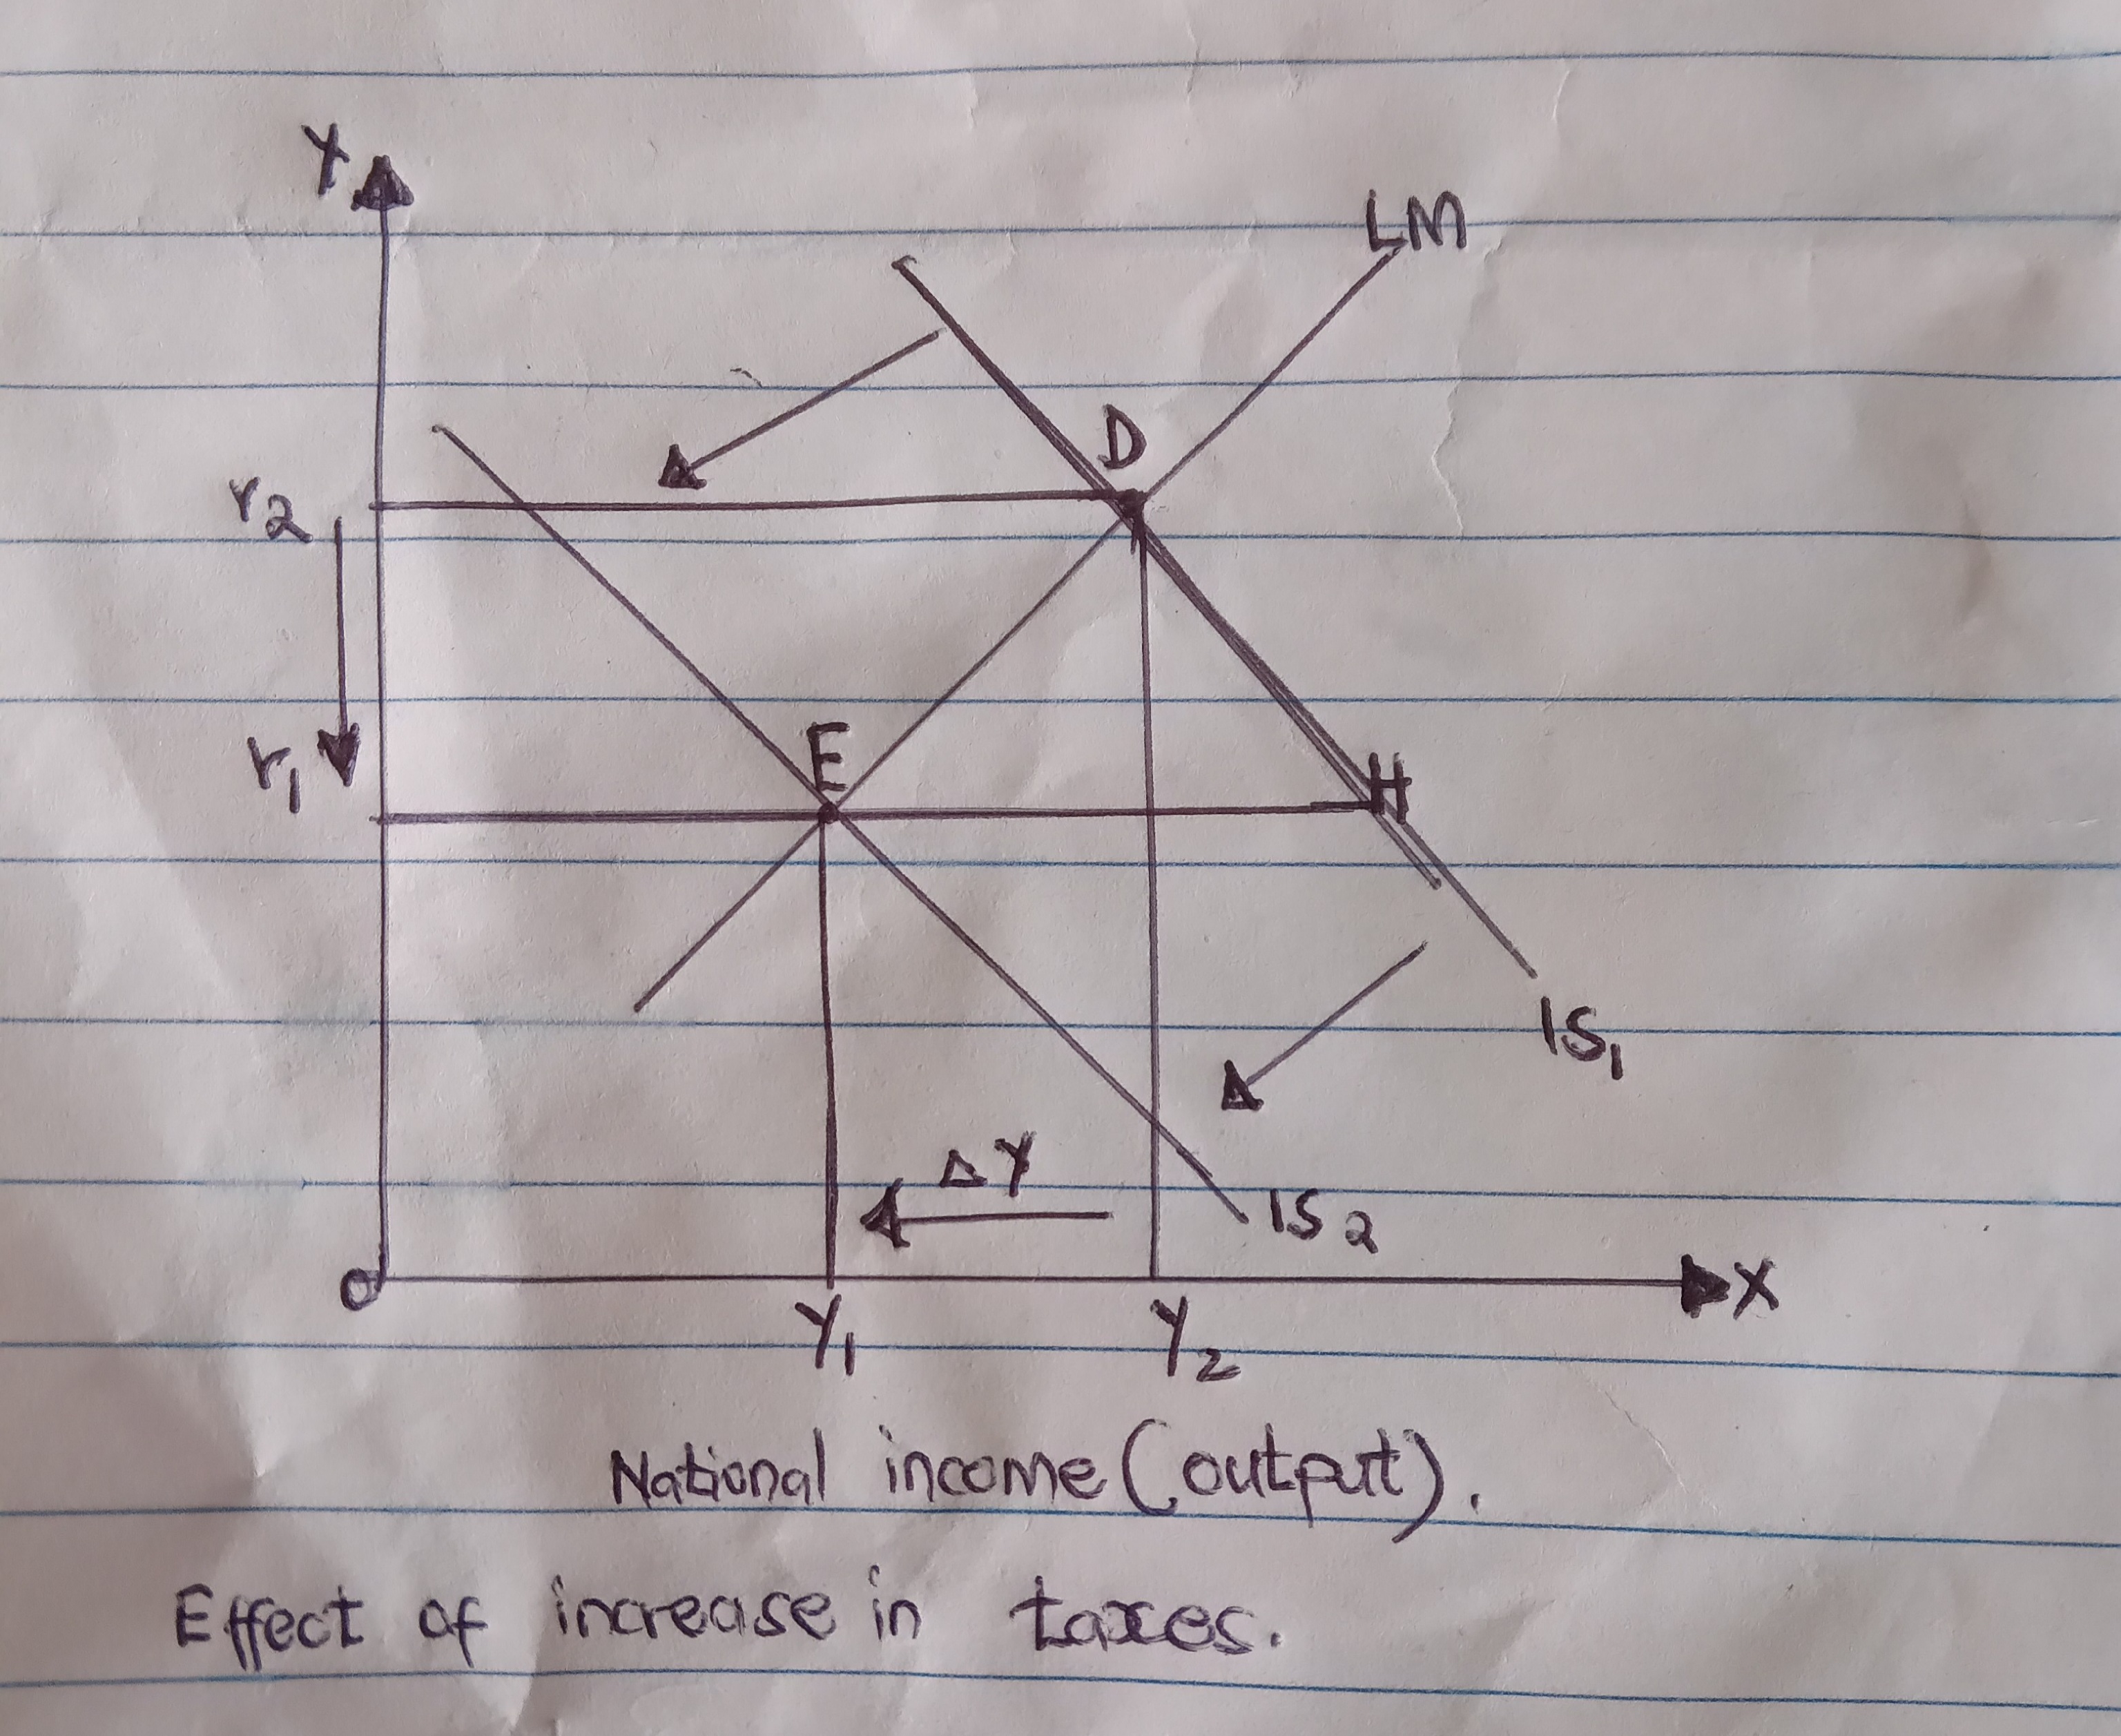 Y
LM
D
r2
E
r1
H
IS1
ΔY
IS2
O
X
Y1
Y2
National income (output).
Effect of increase in taxes.